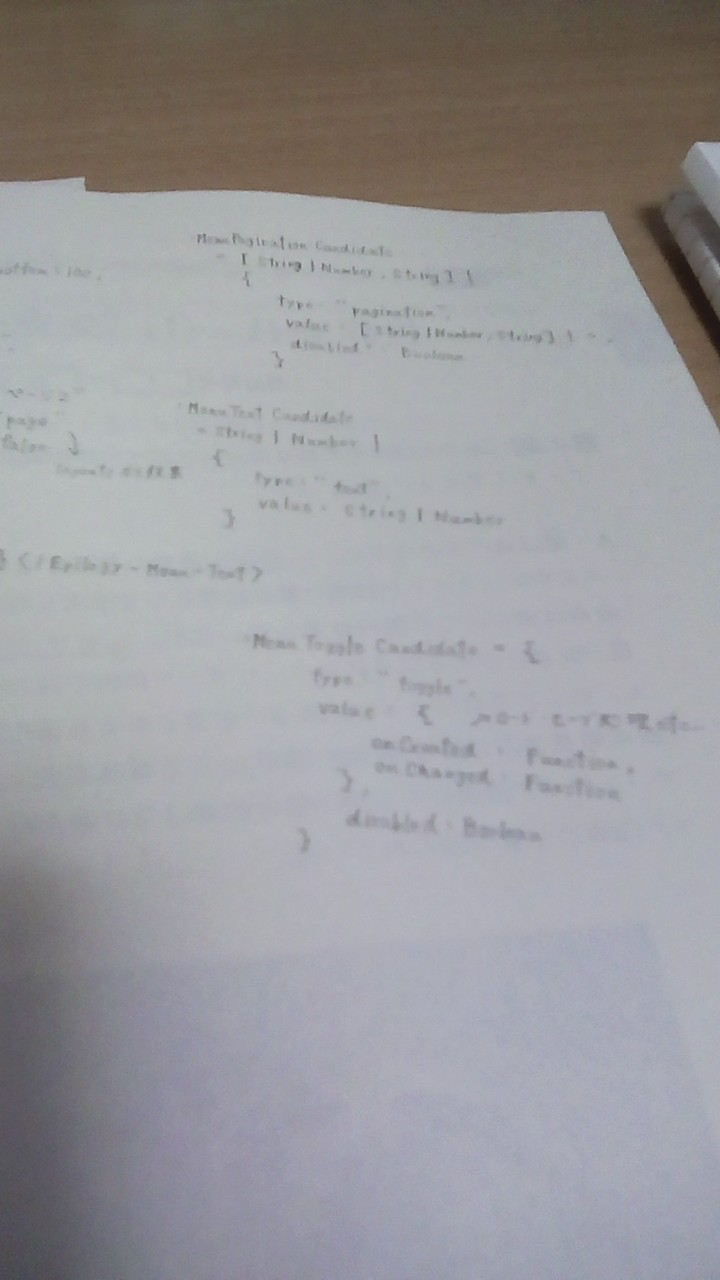 MenuPagination Candidate
= [ String | Number, String ] |
{
type: "pagination",
value: [ String | Number, String ] |
disabled: Boolean
}
100,
page
false }
Menu Text Candidate
= String | Number |
{
type: "text",
value: String | Number
}
</Epilogy-Menu-Text>
Menu Toggle Candidate = {
type: "toggle",
value: {
onCreated: Function,
onChanged: Function
},
disabled: Boolean
}